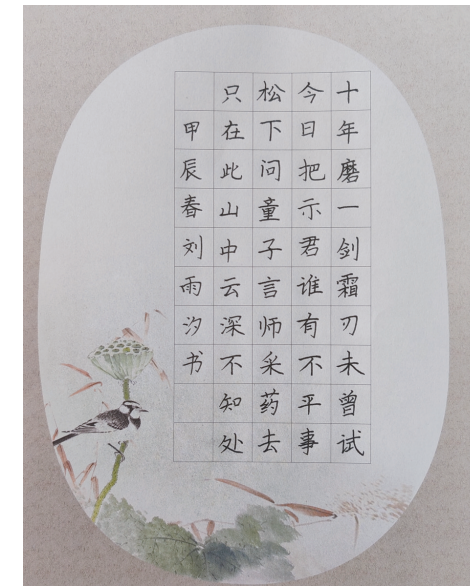 十年磨一剑霜刃未曾试
今日把示君谁有不平事
松下问童子言师采药去
只在此山中云深不知处
甲辰春刘雨汐书